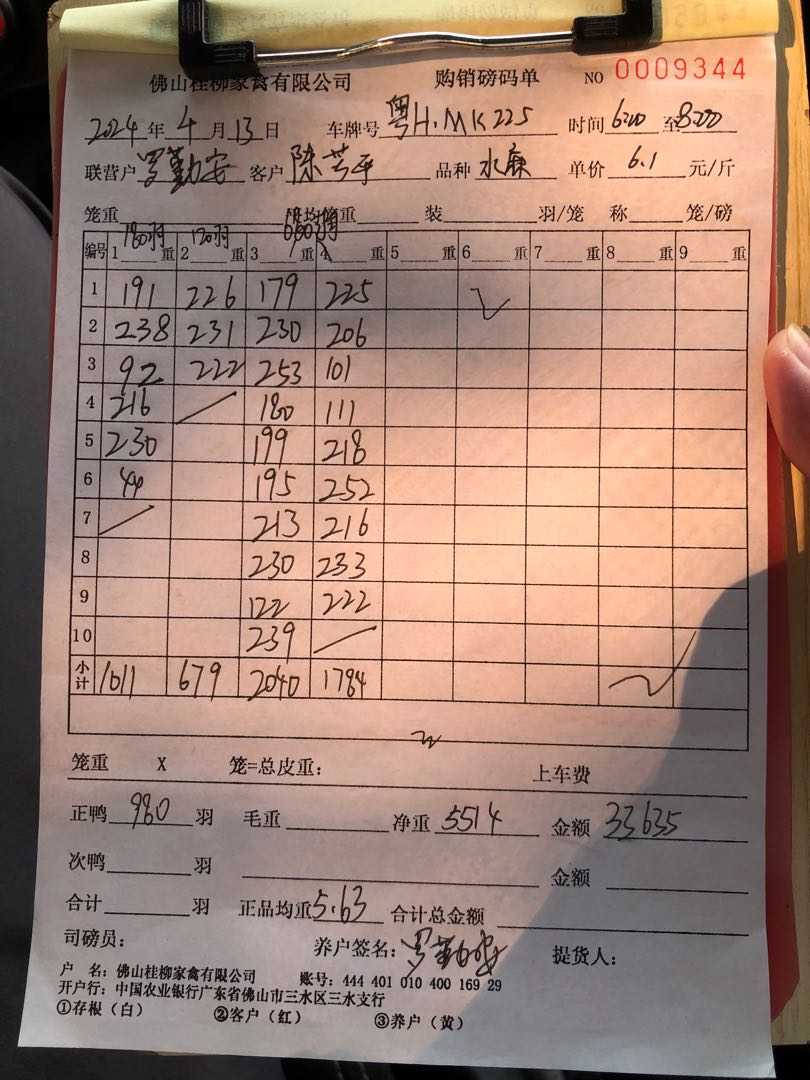 佛山桂柳家禽有限公司 购销磅码单 NO 0009344
2024年4月13日 车牌号粤H.MK225 时间6:00至8:00
联营户罗勤安 客户陈芳平 品种水麻 单价6.1元/斤
笼重 均笼重 装 羽/笼 称 笼/磅
180羽 120羽 680羽
编号 1 重 2 重 3 重 4 重 5 重 6 重 7 重 8 重 9 重
1 191 226 179 225
2 238 231 230 206
3 92 222 253 101
4 216 180 111
5 230 199 218
6 44 195 252
7 213 216
8 230 233
9 122 222
10 239
小计 1011 679 2040 1784
笼重 X 笼=总皮重: 上车费
正鸭980羽 毛重 净重5514 金额33635
次鸭 羽 金额
合计 羽 正品均重5.63 合计总金额
司磅员: 养户签名:罗勤安 提货人:
户 名:佛山桂柳家禽有限公司 账号:444 401 010 400 169 29
开户行:中国农业银行广东省佛山市三水区三水支行
①存根(白) ②客户(红) ③养户(黄)